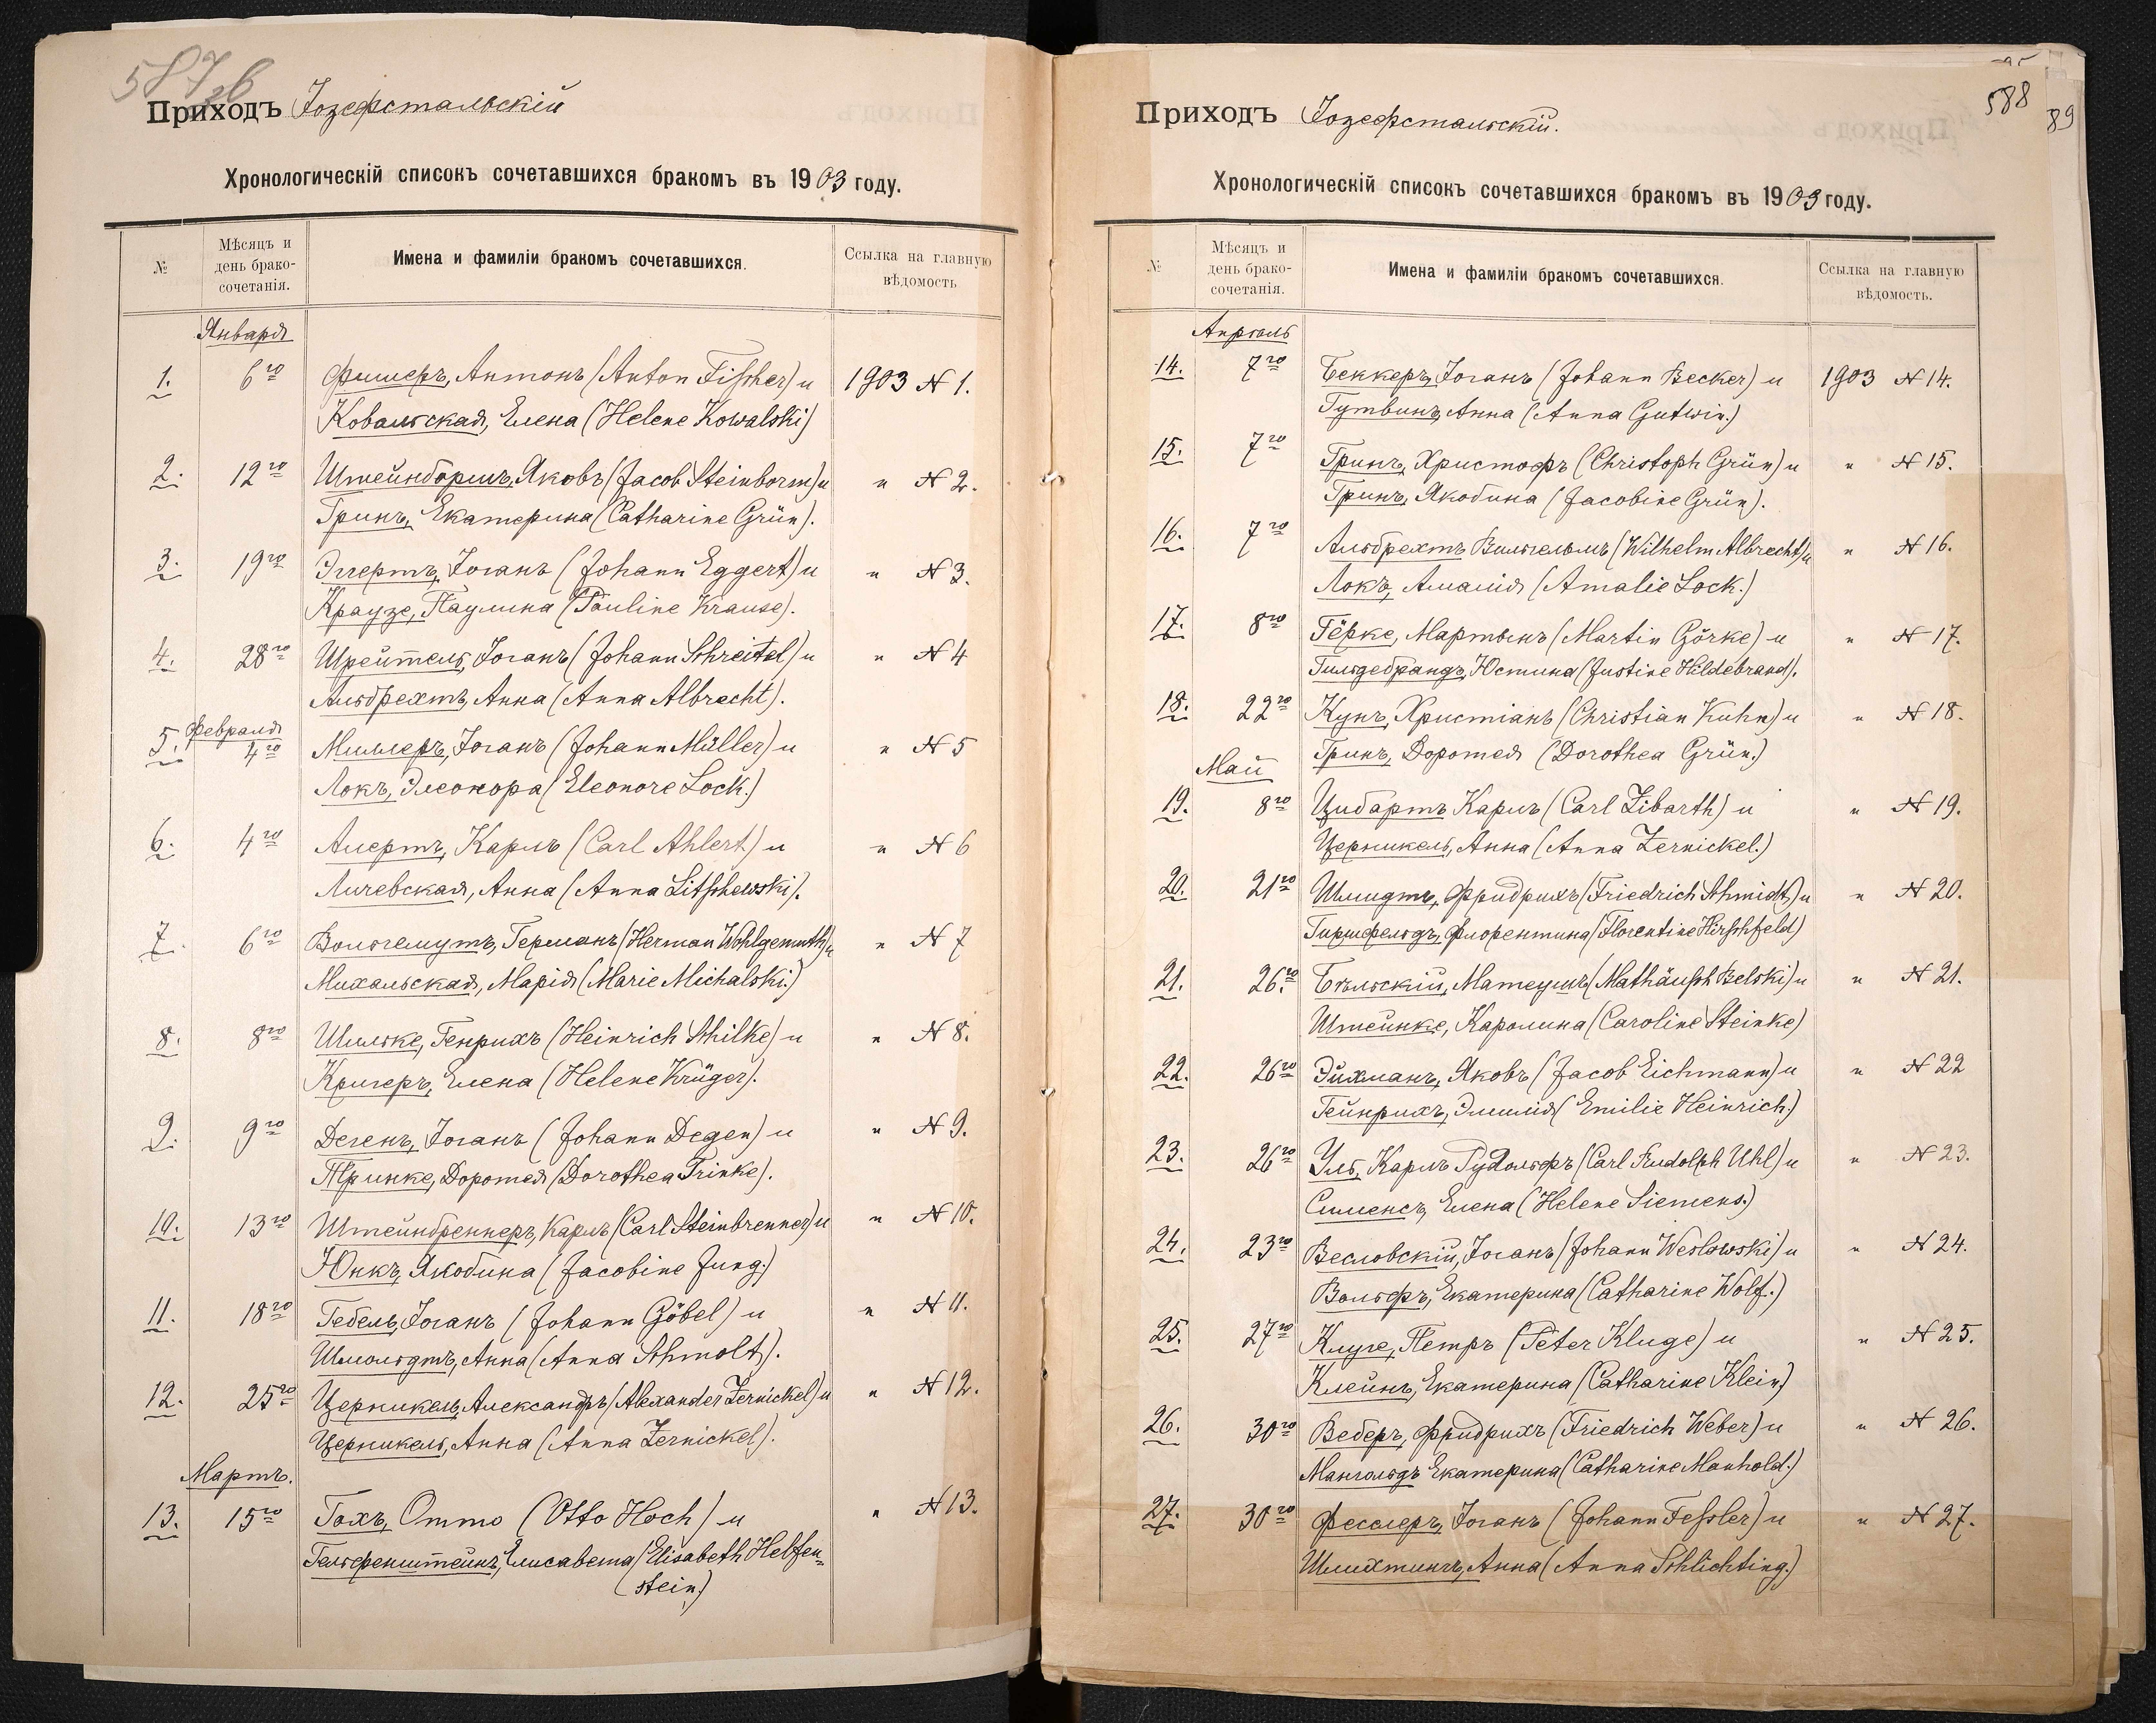 587 об
Приходъ Іозефстальскій
Хронологическій списокъ сочетавшихся бракомъ въ 1903 году.
№ Мѣсяцъ и день брако-сочетанія. Имена и фамиліи бракомъ сочетавшихся. Ссылка на главную вѣдомость
Января
1. 6го Фишеръ, Антонъ (Anton Fischer) и 1903 № 1.
Ковальская, Елена (Helene Kowalski)
2. 12го Штейнбормъ, Яковъ (Jacob Steinborm) и " № 2.
Гринъ, Екатерина (Catharine Grün).
3. 19го Эггертъ, Іоганъ (Johann Eggert) и " № 3.
Краузе, Паулина (Pauline Krause).
4. 28го Шрейтель, Іоганъ (Johann Schreitel) и " № 4
Альбрехтъ, Анна (Anna Albrecht).
Февраля
5. 4го Миллеръ, Іоганъ (Johann Müller) и " № 5
Локъ, Элеонора (Eleonore Lock.)
6. 4го Алертъ, Карлъ (Carl Ahlert) и " № 6
Личевская, Анна (Anna Litschewski).
7. 6го Вольгемутъ, Германъ (Herman Wohlgemuth) и " № 7
Михальская, Марія (Marie Michalski.)
8. 8го Шильке, Генрихъ (Heinrich Schilke) и " № 8.
Кригеръ, Елена (Helene Krüger).
9. 9го Дегенъ, Іоганъ (Johann Degen) и " № 9.
Тринке, Доротея (Dorothea Trinke).
10. 13го Штейнбреннеръ, Карлъ (Carl Steinbrenner) и " № 10.
Юнкъ, Якобина (Jacobine Jung.)
11. 18го Гебель, Іоганъ (Johann Göbel) и " № 11.
Шмольдтъ, Анна (Anna Schmolt).
12. 25го Церникель, Александръ (Alexander Zernickel) и " № 12.
Церникель, Анна (Anna Zernickel).
Мартъ.
13. 15го Гохъ, Отто (Otto Hoch) и " № 13.
Гельфенштейнъ, Елисавета (Elisabeth Helfen-
stein.)
588
89
Приходъ Іозефстальскій.
Хронологическій списокъ сочетавшихся бракомъ въ 1903 году.
№ Мѣсяцъ и день брако-сочетанія. Имена и фамиліи бракомъ сочетавшихся. Ссылка на главную вѣдомость.
Апрѣль
14. 7го Беккеръ, Іоганъ (Johann Becker) и 1903 № 14.
Гутвинъ, Анна (Anna Gutwin.)
15. 7го Гринъ, Христофъ (Christoph Grün) и " № 15.
Гринъ, Якобина (Jacobine Grün).
16. 7го Альбрехтъ Вильгельмъ (Wilhelm Albrecht) и " № 16.
Локъ, Амалія (Amalie Lock.)
17. 8го Гёрке, Мартынъ (Martin Görke) и " № 17.
Гильдебрандъ, Юстина (Justine Hildebrand).
18. 22го Кунъ, Христіанъ (Christian Kuhn) и " № 18.
Гринъ, Доротея (Dorothea Grün.)
Май
19. 8го Цибартъ Карлъ (Carl Zibarth) и " № 19.
Церникель, Анна (Anna Zernickel.)
20. 21го Шмидтъ, Фридрихъ (Friedrich Schmidt) и " № 20.
Гиршфельдъ, Флорентина (Florentine Hirschfeld)
21. 26го Бѣльскій, Матеушъ (Mathäusch Belski) и " № 21.
Штейнке, Каролина (Caroline Steinke)
22. 26го Эйхманъ, Яковъ (Jacob Eichmann) и " № 22
Гейнрихъ, Эмилія (Emilie Heinrich.)
23. 26го Уль, Карлъ Рудольфъ (Carl Rudolph Uhl) и " № 23.
Сименсъ, Елена (Helene Siemens.)
24. 23го Весловскій, Іоганъ (Johann Weslowski) и " № 24.
Вольфъ, Екатерина (Catharine Wolf.)
25. 27го Клуге, Петръ (Peter Kluge) и " № 25.
Клейнъ, Екатерина (Catharine Klein.)
26. 30го Веберъ, Фридрихъ (Friedrich Weber) и " № 26.
Мангольдъ Екатерина (Catharine Manhold.)
27. 30го Фесслеръ, Іоганъ (Johann Fessler) и " № 27.
Шлихтингъ, Анна (Anna Schlichting.)